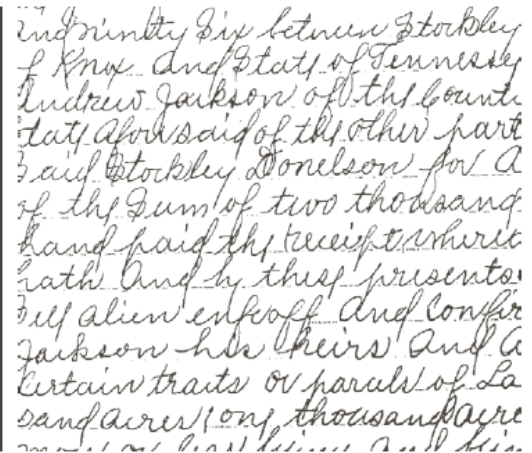 and ninety Six between Stockley
f Knox and State of Tennessey
Andrew Jackson of the County
State aforesaid of the other part
Said Stockley Donelson for a
of the Sum of two thousand
hand paid the receipt wherit
hath and by these presents
Sell alien enfeoff and Confir
Jackson his heirs and a
Certain traits or parcels of La
sand acres, one thousand acre
more or less being and bein